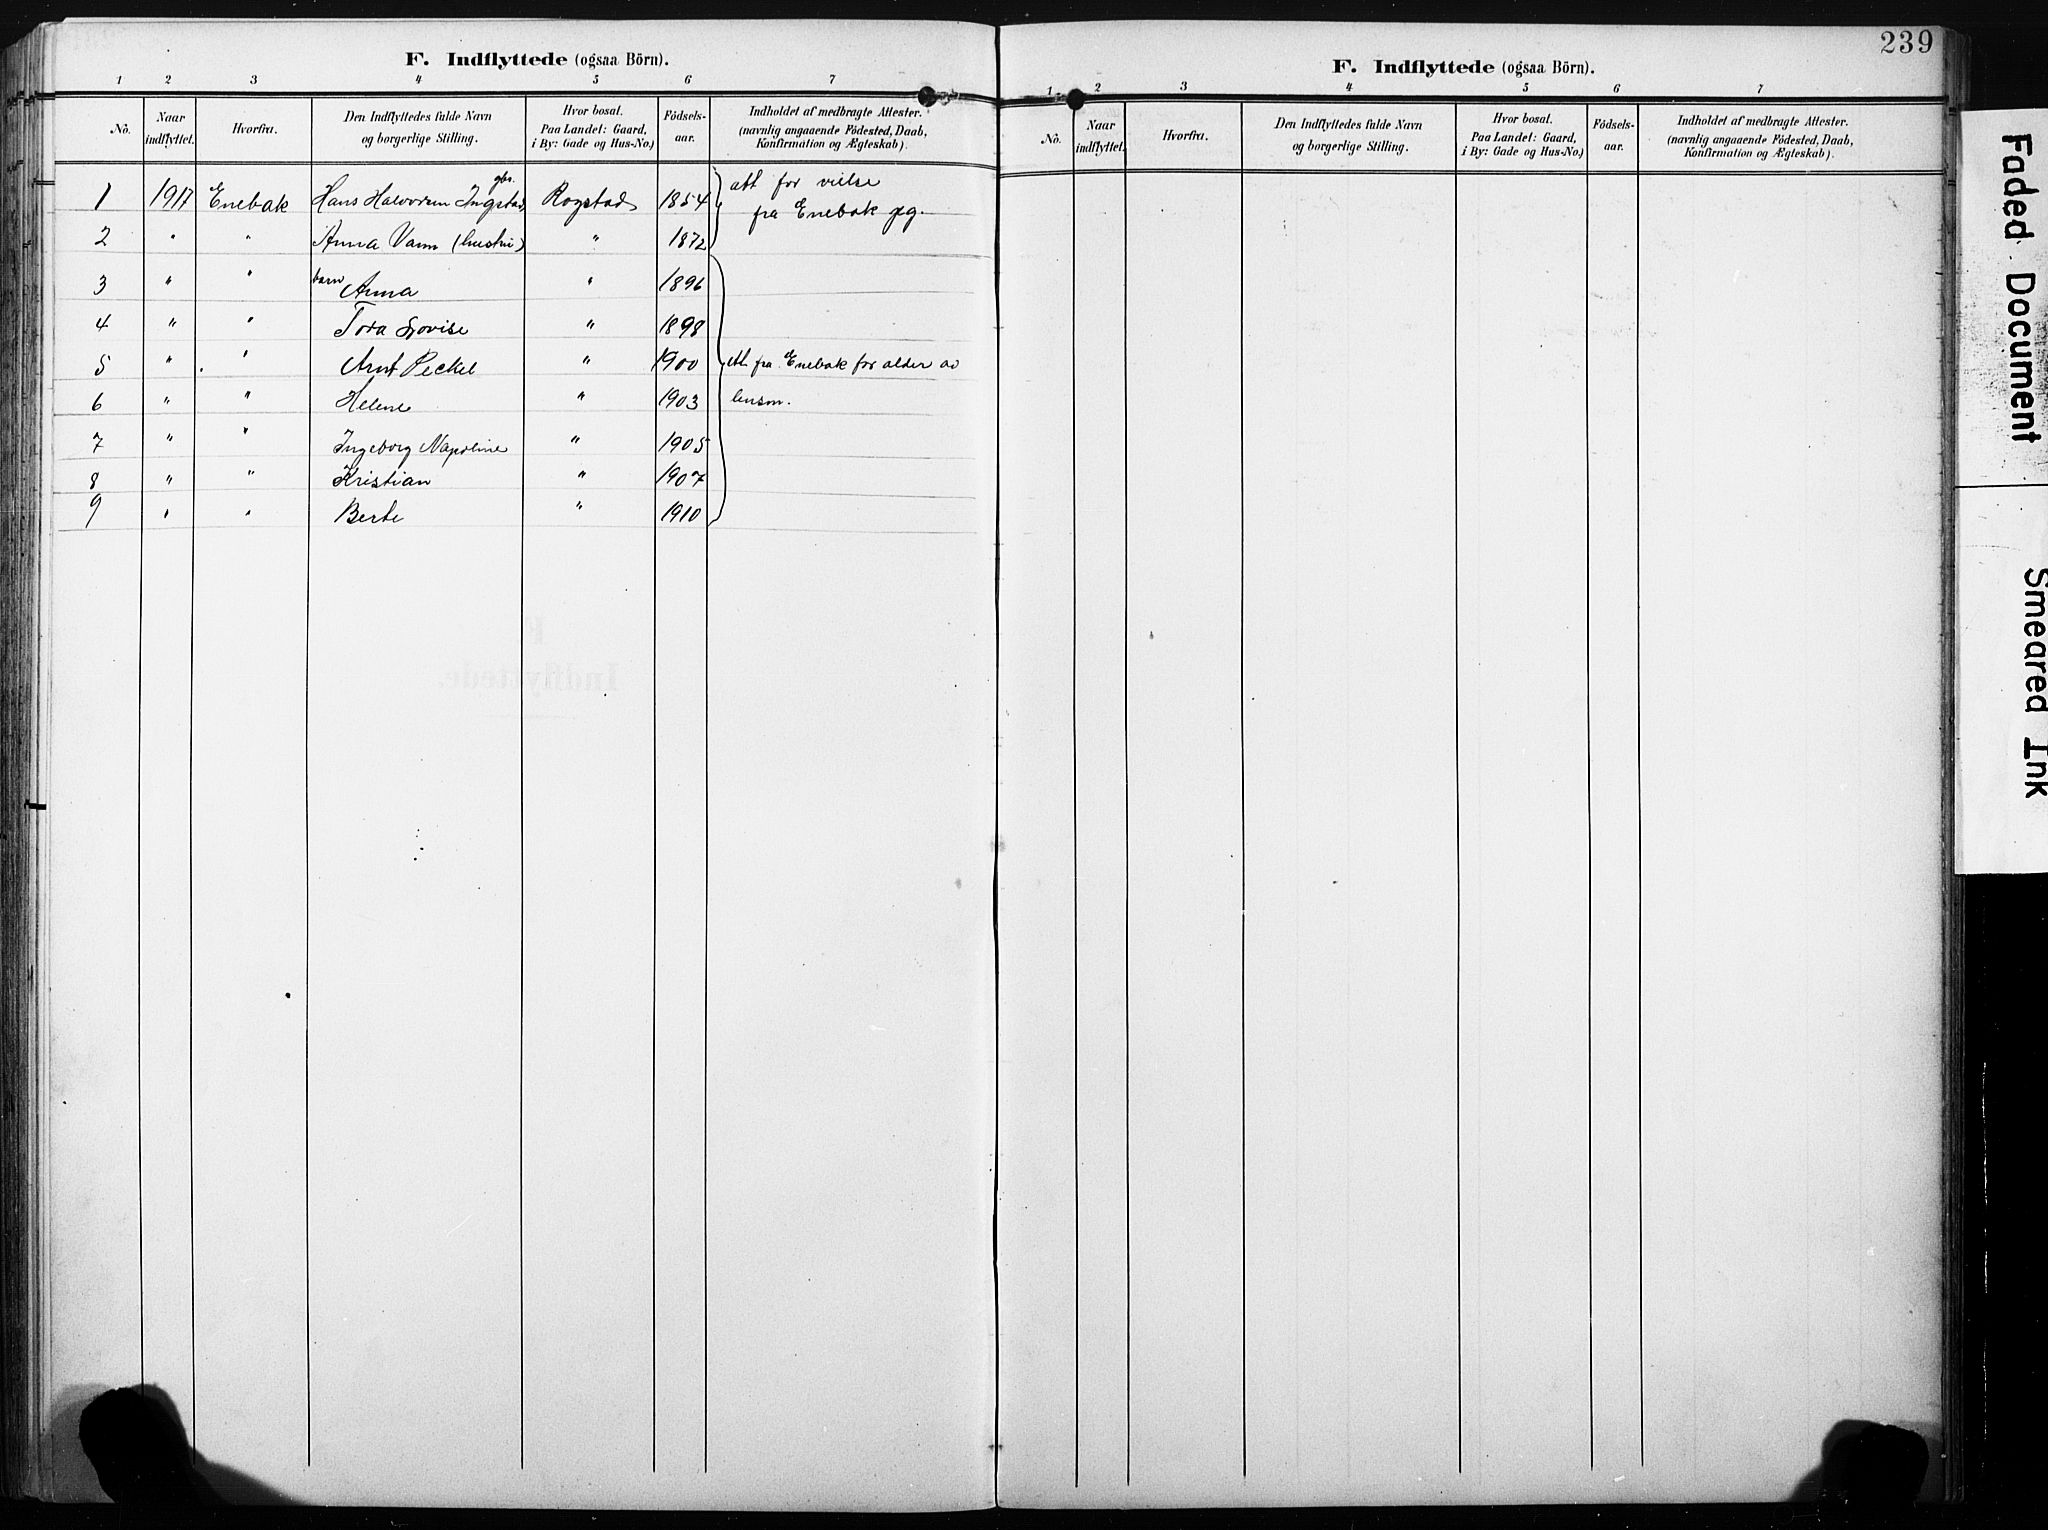 F. Indflyttede (ogsaa Börn).
1 2 3 4 5 6 7
No. Naar indflyttet. Hvorfra. Den Indflyttedes fulde Navn og borgerlige Stilling. Hvor bosat. Paa Landet: Gaard, i By: Gade og Hus-No.) Födsels-aar. Indholdet af medbragte Attester. (navnlig angaaende Födested, Daab, Konfirmation og Ægteskab).
gbr.
1 1917 Enebak Hans Halvorsen Ingstad Rogstad 1854 att for vielse
fra Enebak pg.
2 " " Anna (hustru) " 1872
3 " " barn Anna " 1896
4 " " Tora Lovise " 1898
5 " " Arnt " 1900 att fra Enebak for alder av
6 " " Helene " 1903 lensm.
7 " " Ingeborg Napoline " 1905
8 " " Kristian " 1907
9 " " Berte " 1910
239
F. Indflyttede (ogsaa Börn).
1 2 3 4 5 6 7
No. Naar indflyttet. Hvorfra. Den Indflyttedes fulde Navn og borgerlige Stilling. Hvor bosat. Paa Landet: Gaard, i By: Gade og Hus-No.) Födsels-aar. Indholdet af medbragte Attester. (navnlig angaaende Födested, Daab, Konfirmation og Ægteskab).
Faded Document
Smeared Ink